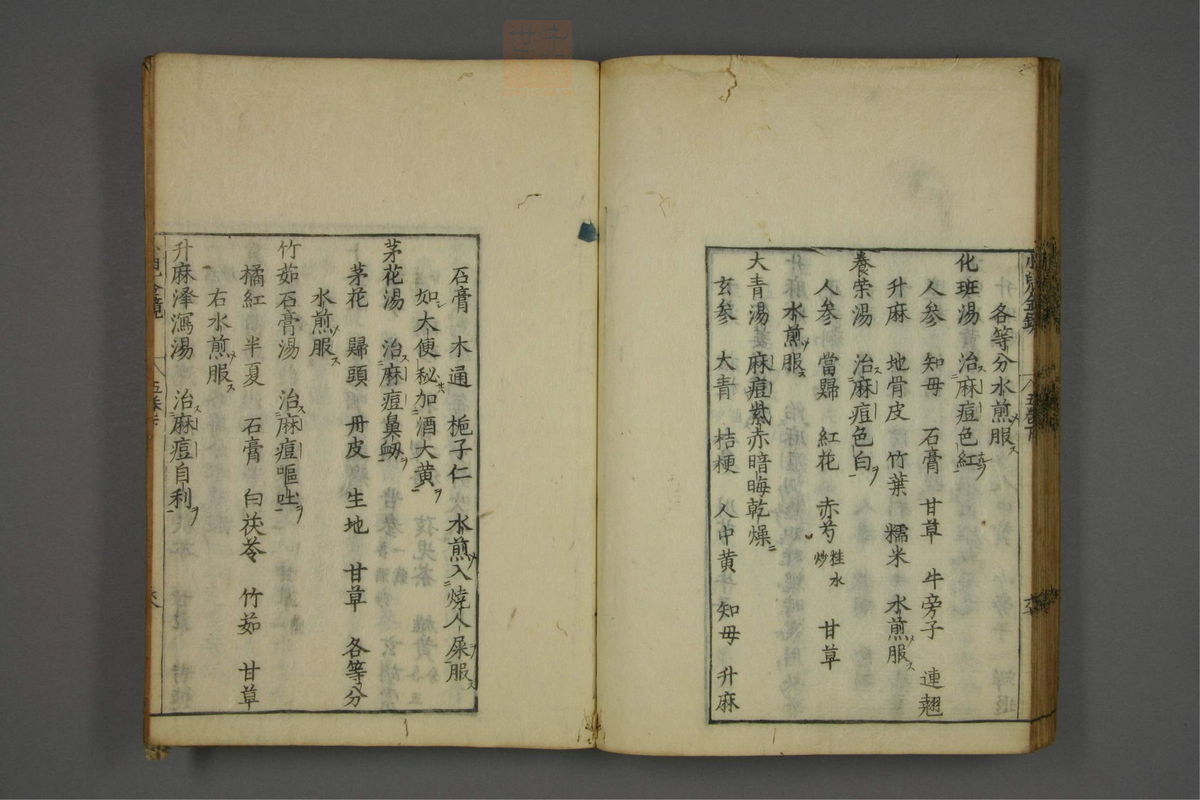 各等分水煎服
化斑湯 治麻痘色紅
人参 知母 石膏 甘草 牛旁子 連翹
升麻 地骨皮 竹葉 糯米 水煎服
養荣湯 治麻痘色白
人参 當歸 紅花 赤芍桂水炒 甘草
水煎服
大青湯 麻痘紫赤暗晦乾燥
玄参 大青 桔梗 人中黄 知母 升麻
石膏 木通 梔子仁 水煎入燒人屎服
如大便秘加酒大黄
茅花湯 治麻痘鼻衂
茅花 歸頭 丹皮 生地 甘草 各等分
水煎服
竹茹石膏湯 治麻痘嘔吐
橘紅 半夏 石膏 白茯苓 竹茹 甘草
右水煎服
升麻澤瀉湯 治麻痘自利